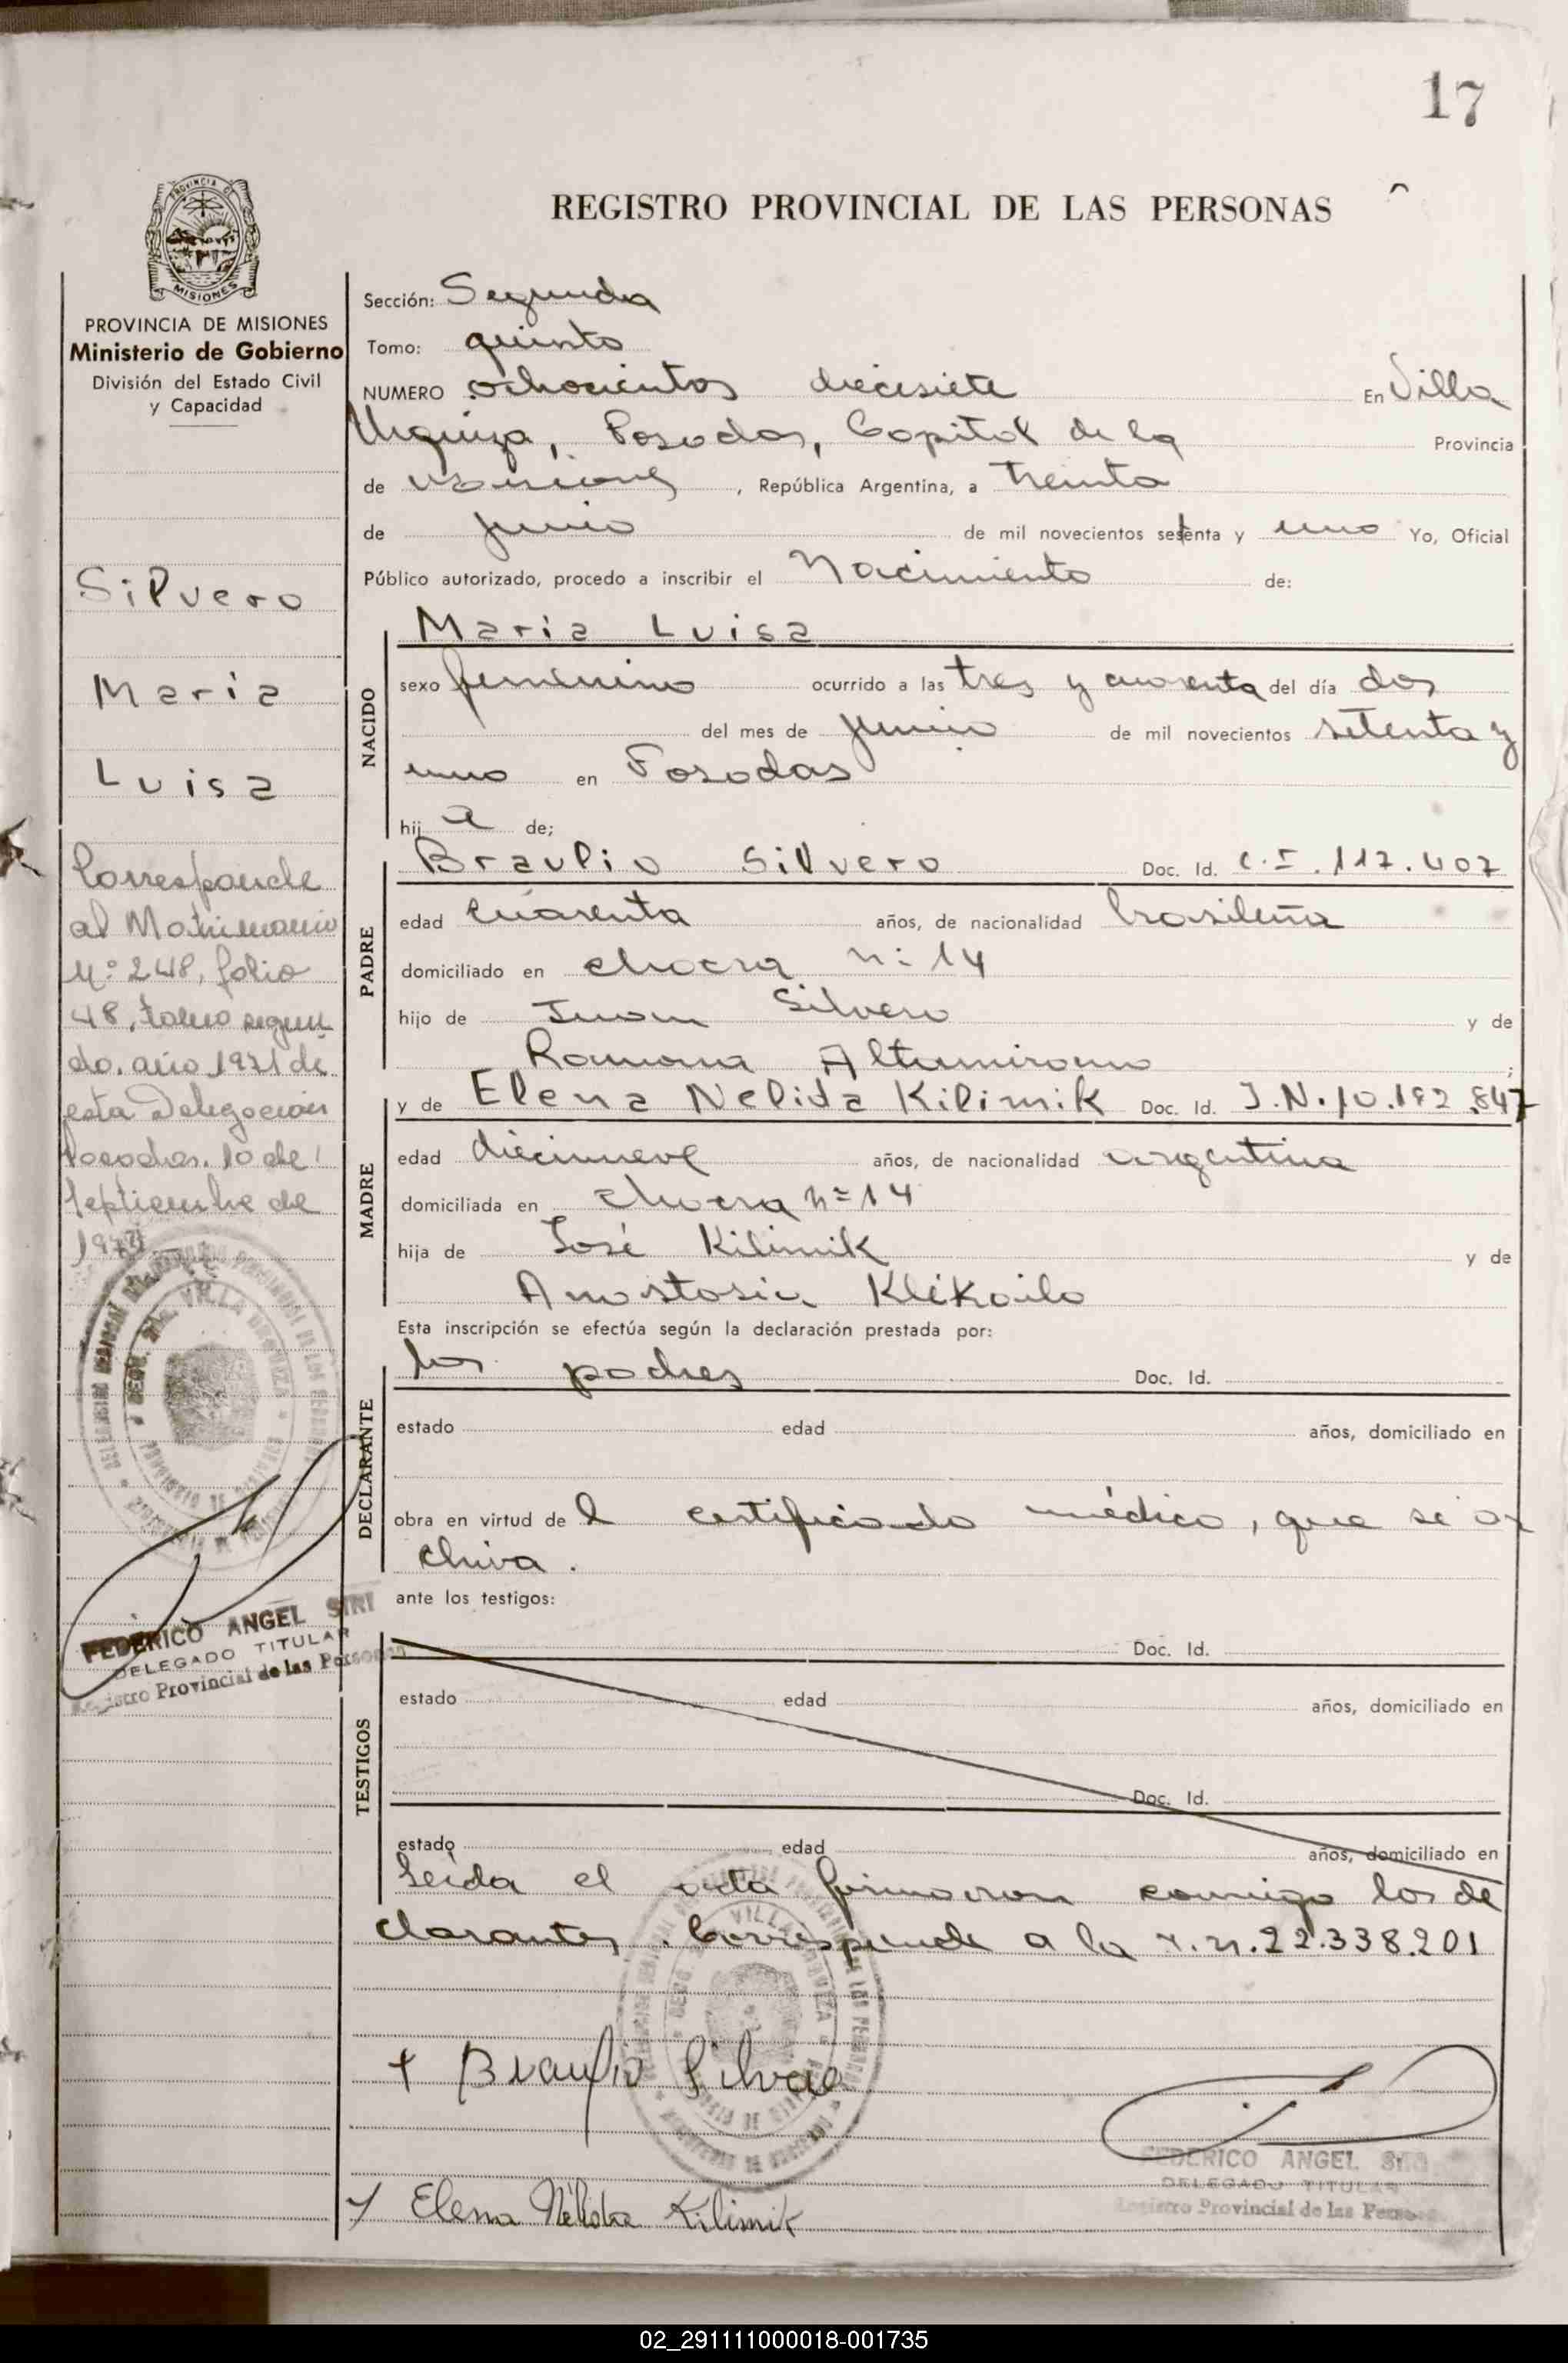 17
REGISTRO PROVINCIAL DE LAS PERSONAS
PROVINCIA DE
MISIONES
PROVINCIA DE MISIONES
Ministerio de Gobierno
División del Estado Civil
y Capacidad
Silvero
María
Luisa
Corresponde
al Matrimonio
Nº 248, folio
48, tomo segun
do, año 1971 de
esta Delegación
Posadas, 10 de
septiembre de
FEDERICO ANGEL SIRI
DELEGADO TITULAR
Registro Provincial de las Personas
Sección: Segunda
Tomo: quinto
NUMERO ochocientos diecisiete En Villa
Urquiza, Posadas, Capital de la Provincia
de Misiones, República Argentina, a treinta
de junio de mil novecientos setenta y uno Yo, Oficial
Público autorizado, procedo a inscribir el Nacimiento de:
NACIDO
María Luisa
sexo femenino ocurrido a las tres y cuarenta del día dos
del mes de junio de mil novecientos setenta y
uno en Posadas
hij a de;
PADRE
Braulio Silvero Doc. Id. C.I. 117.407
edad cuarenta años, de nacionalidad brasileña
domiciliado en chacra nº 14
hijo de Juan Silvero y de
Ramona Altamirano ;
MADRE
y de Elena Nelida Kilimik Doc. Id. I.N. 10.192.847
edad diecinueve años, de nacionalidad argentina
domiciliada en chacra nº 14
hija de José Kilimik y de
Anastasia Klekailo
Esta inscripción se efectúa según la declaración prestada por:
DECLARANTE
los padres Doc. Id.
estado edad años, domiciliado en
obra en virtud de l certificado médico, que se ar
chiva.
ante los testigos:
TESTIGOS
Doc. Id.
estado edad años, domiciliado en
Doc. Id.
estado edad años, domiciliado en
Leída el acta firmaron conmigo los de
clarantes. Corresponde a la 22.338.201
Braulio Silvero
FEDERICO ANGEL SIRI
DELEGADO TITULAR
Registro Provincial de las Personas
Elena Nélida Kilimik
02_291111000018-001735